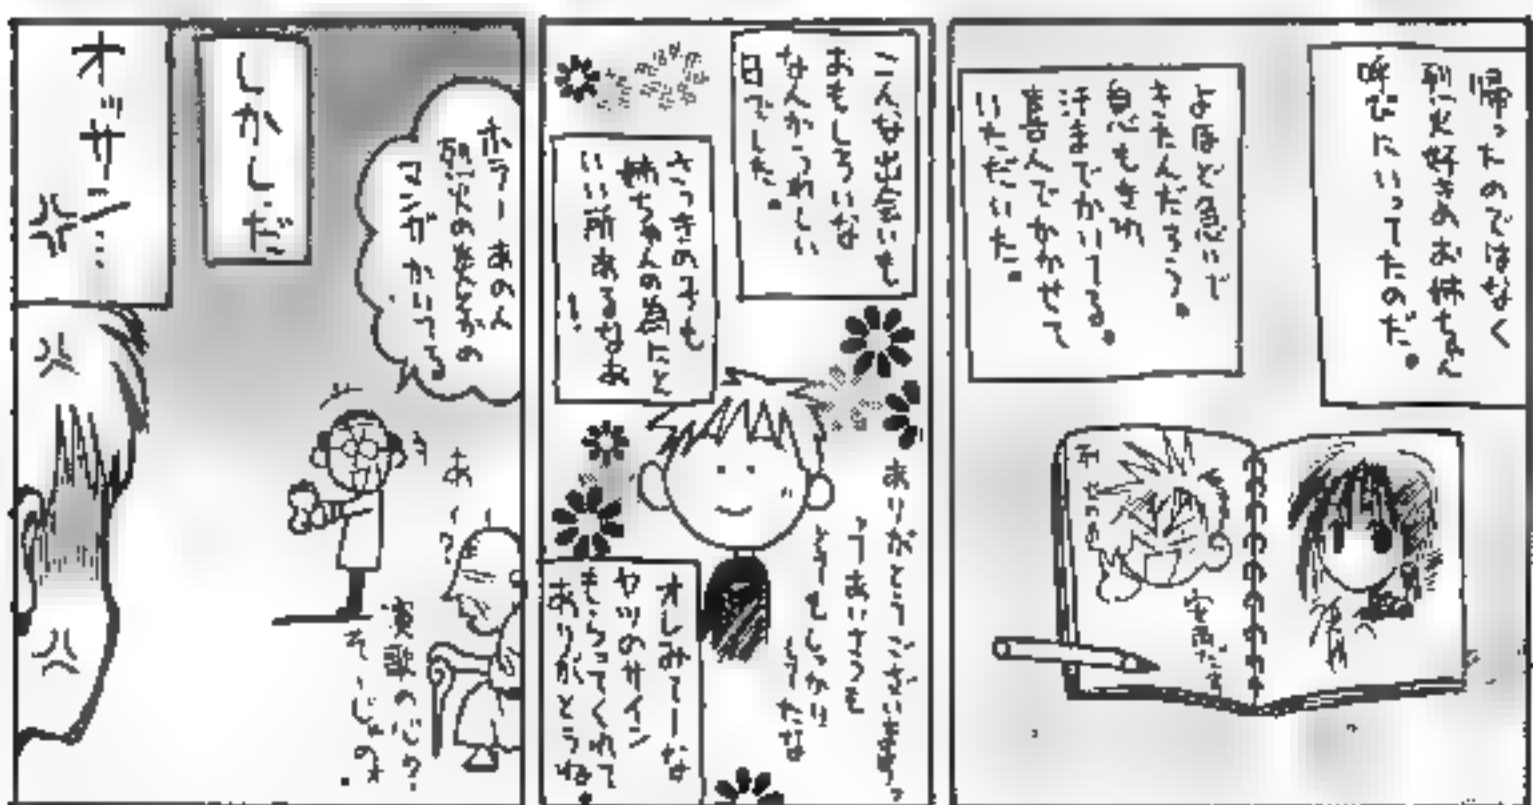 帰ったのではなく
烈火好きのお妹ちゃん
呼びにいってたのだ。
よほど急いで
きたんだろう。
息もきれ
汗までかいてる。
喜んでかかせて
いただいた。
こんな出会いも
おもしろいな
なんかうれしい
日でした。
さっきの子も
妹ちゃんの為だと
いい所あるなあ
！
ありがとうございます。
ってあいさつも
とてもしっかり
してたな
オレみてーな
ヤツのサイン
もらってくれて
ありがとうね。
ホラーあの人
烈火の炎とかの
マンガかいてる
あ
しかしだ
オッサン…